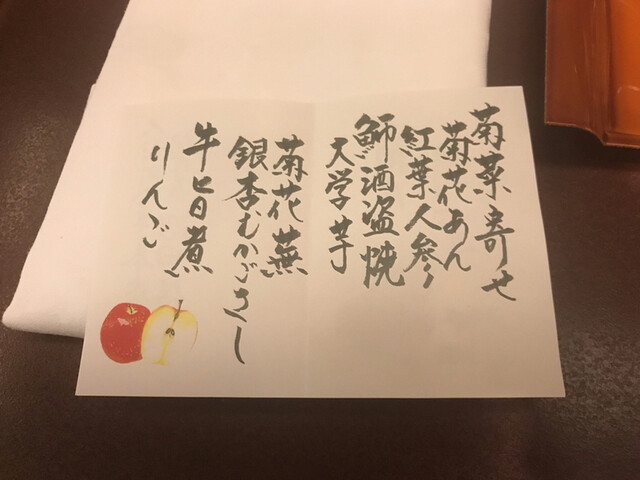 菊菜寄せ
菊花あん
紅葉人参
鰤酒盗焼
大学芋
菊花蕪
銀杏むかごさし
牛旨煮
りんご